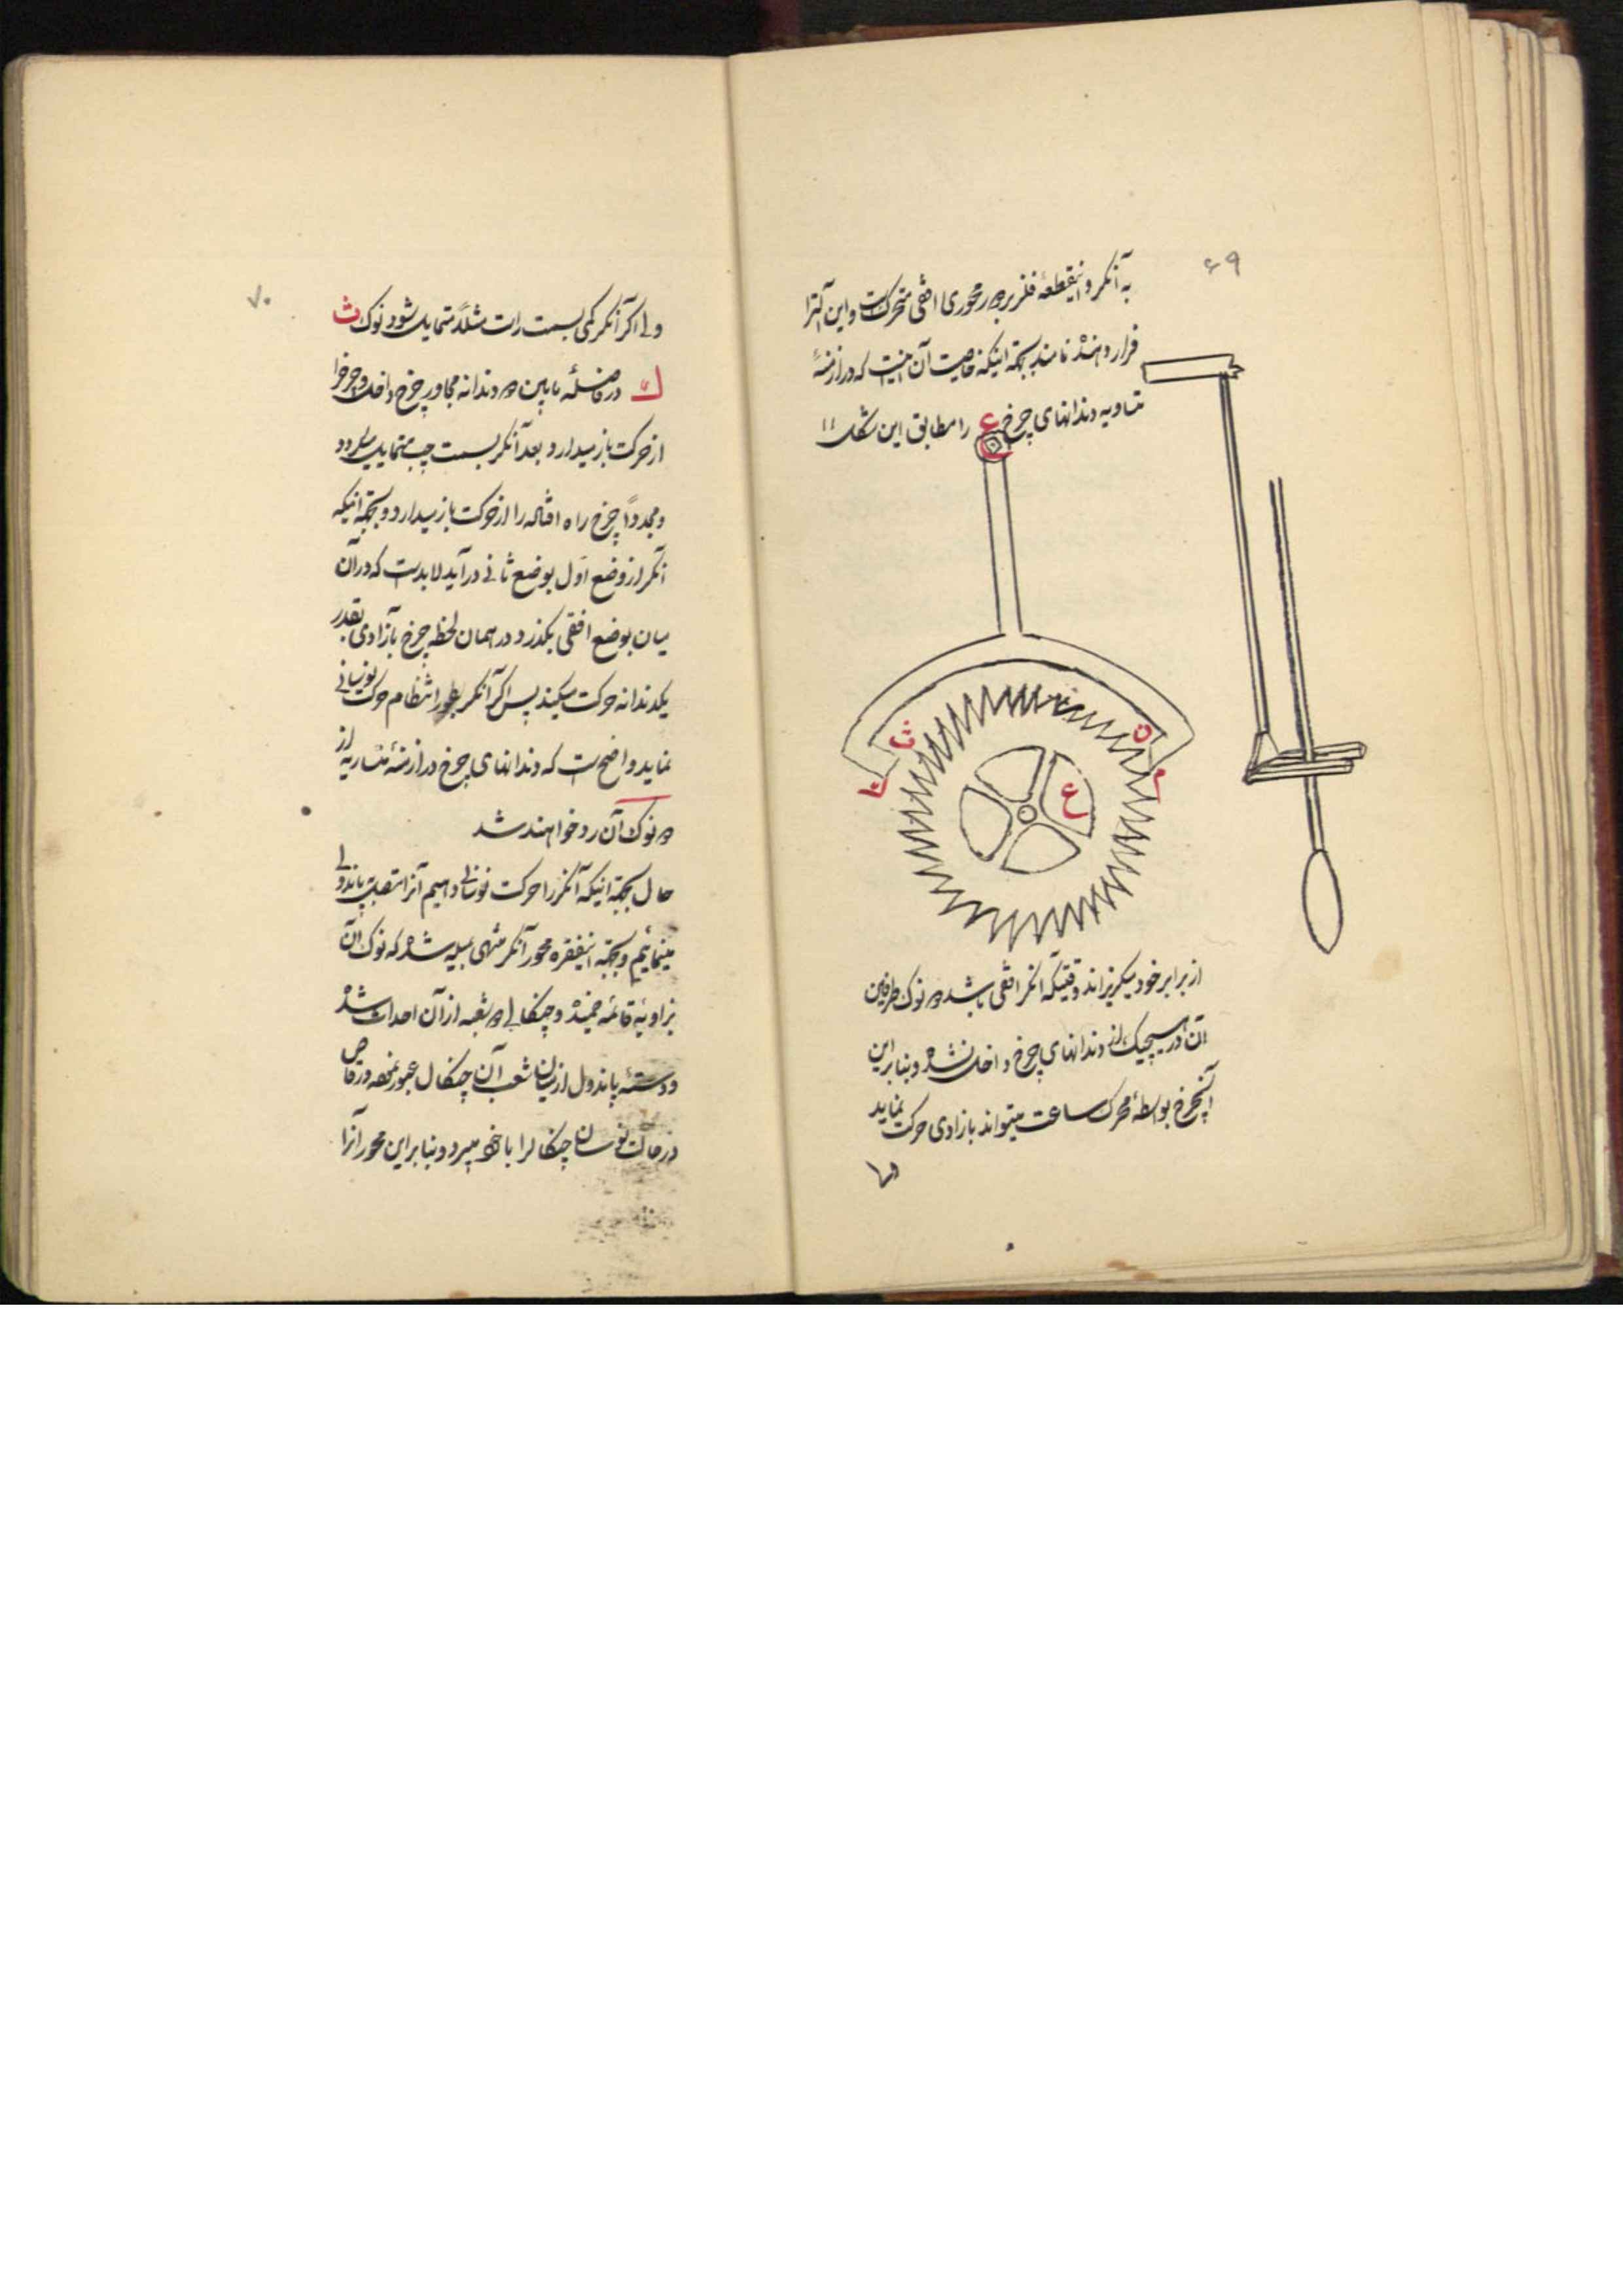 ۶۹
به آنکر و اینقطعه فلز بر دور محوری افقی متحرکست و این آلترا
قرار دهنده نامند بجهة اینکه خاصیت آن اینست که در ازمنهٔ
متساویه دندانهای چرخ ع را مطابق این شکل ۱۱
ث
ن
ع
از برابر خود میگریزاند وقتیکه آنکر افقی باشد دو نوک طرفین
آن در هیچیک از دندانهای چرخ داخل نشده و بنابراین
آنچرخ بواسطهٔ محرک ساعت میتواند بازادی حرکت نماید
۷۰
ولی اگر آنکر کمی بسمت راست مثلاً متمایل شود نوک ث
در فاصلهٔ مابین دو دندانه مجاور چرخ داخل و چرخرا
از حرکت باز میدارد و بعد آنکر بسمت چپ متمایل میشود
و مجدداً چرخ را از حرکت باز میدارد و بجهة اینکه
آنکر از وضع اول بوضع ثانی درآید لابدست که در آن
میان بوضع افقی بگذرد و در همان لحظه چرخ بآزادی بقدر
یکدندانه حرکت میکند پس اگر آنکر بطور انتظام حرکت نوسانی
نماید واضح است که دندانهای چرخ در ازمنهٔ متساویه از
دو نوک آن رد خواهند شد
حال بجهة اینکه آنکر را حرکت نوسانی دهیم آنرا متصل بپاندولی
مینمائیم و بجهة اینفقره محور آنکر منتهی بمیله شده که نوک آن
بزاویهٔ قائمه خمیده و چنگالی دو شعبه از آن احداث شده
و دستهٔ پاندول از میان شعب آن چنگال عبور نموده و رقاص
در حالت نوسان چنگالرا با خود میبرد و بنابراین محور آنرا